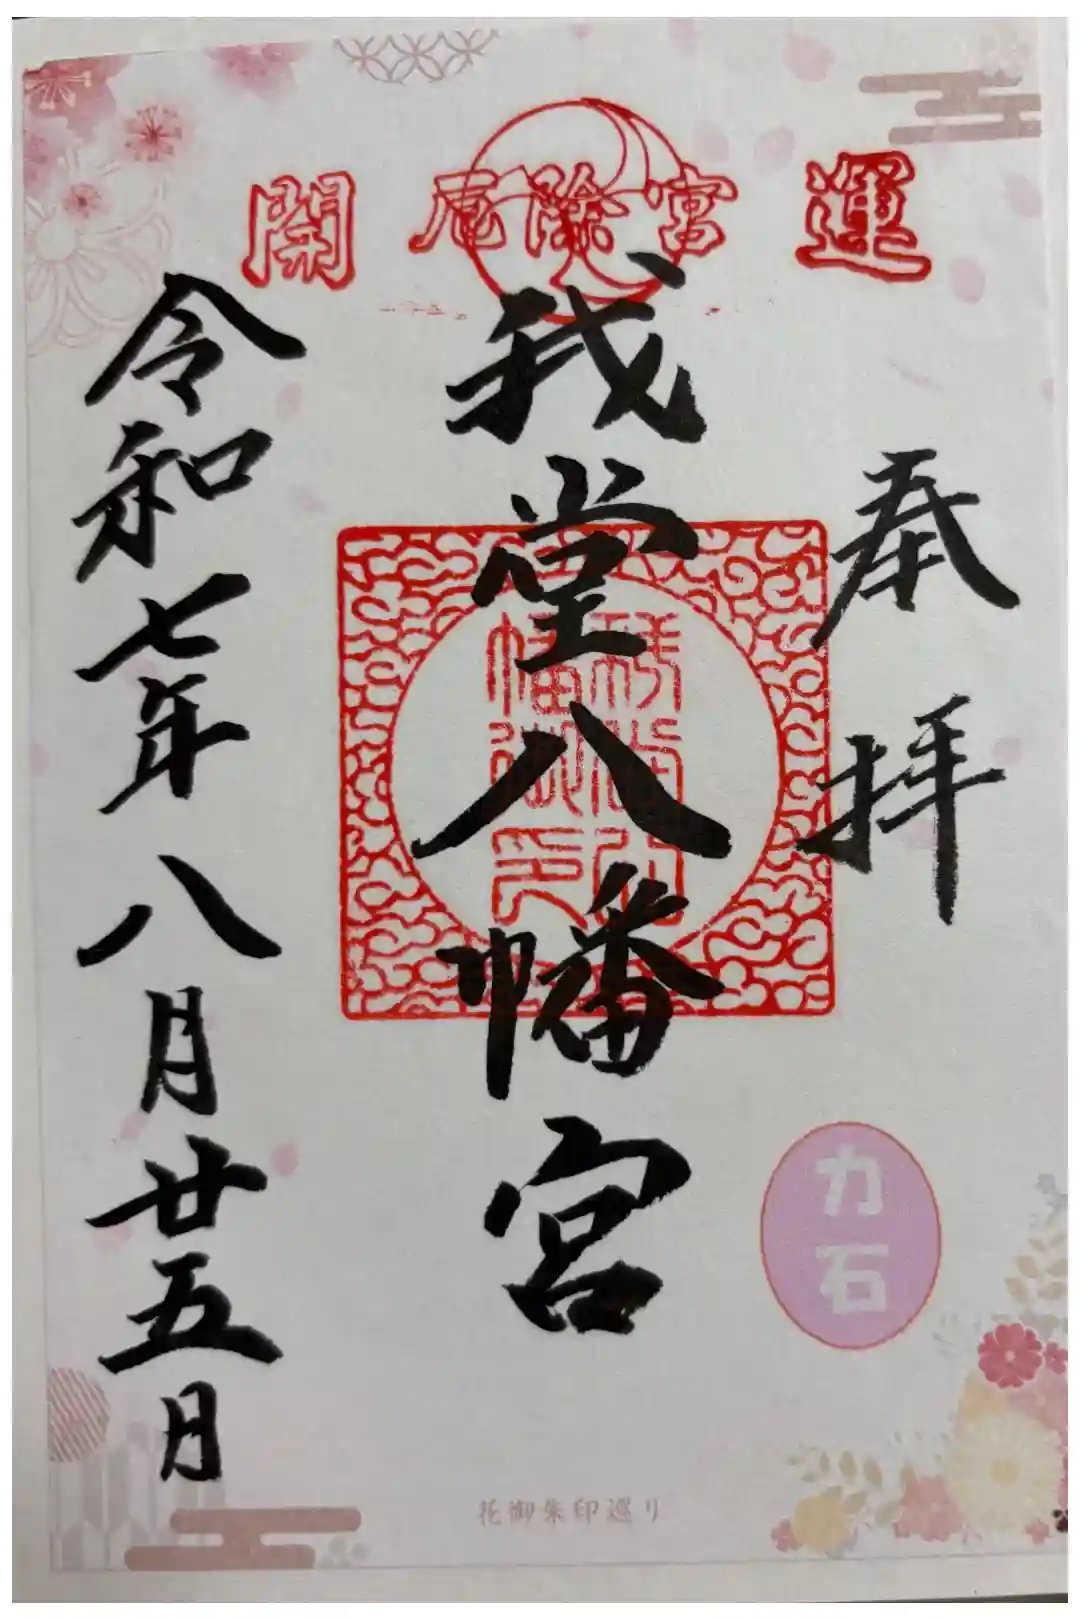 開 厄除宮 運
奉拝
我堂八幡宮
令和七年八月廿五日
力石
花御朱印巡り